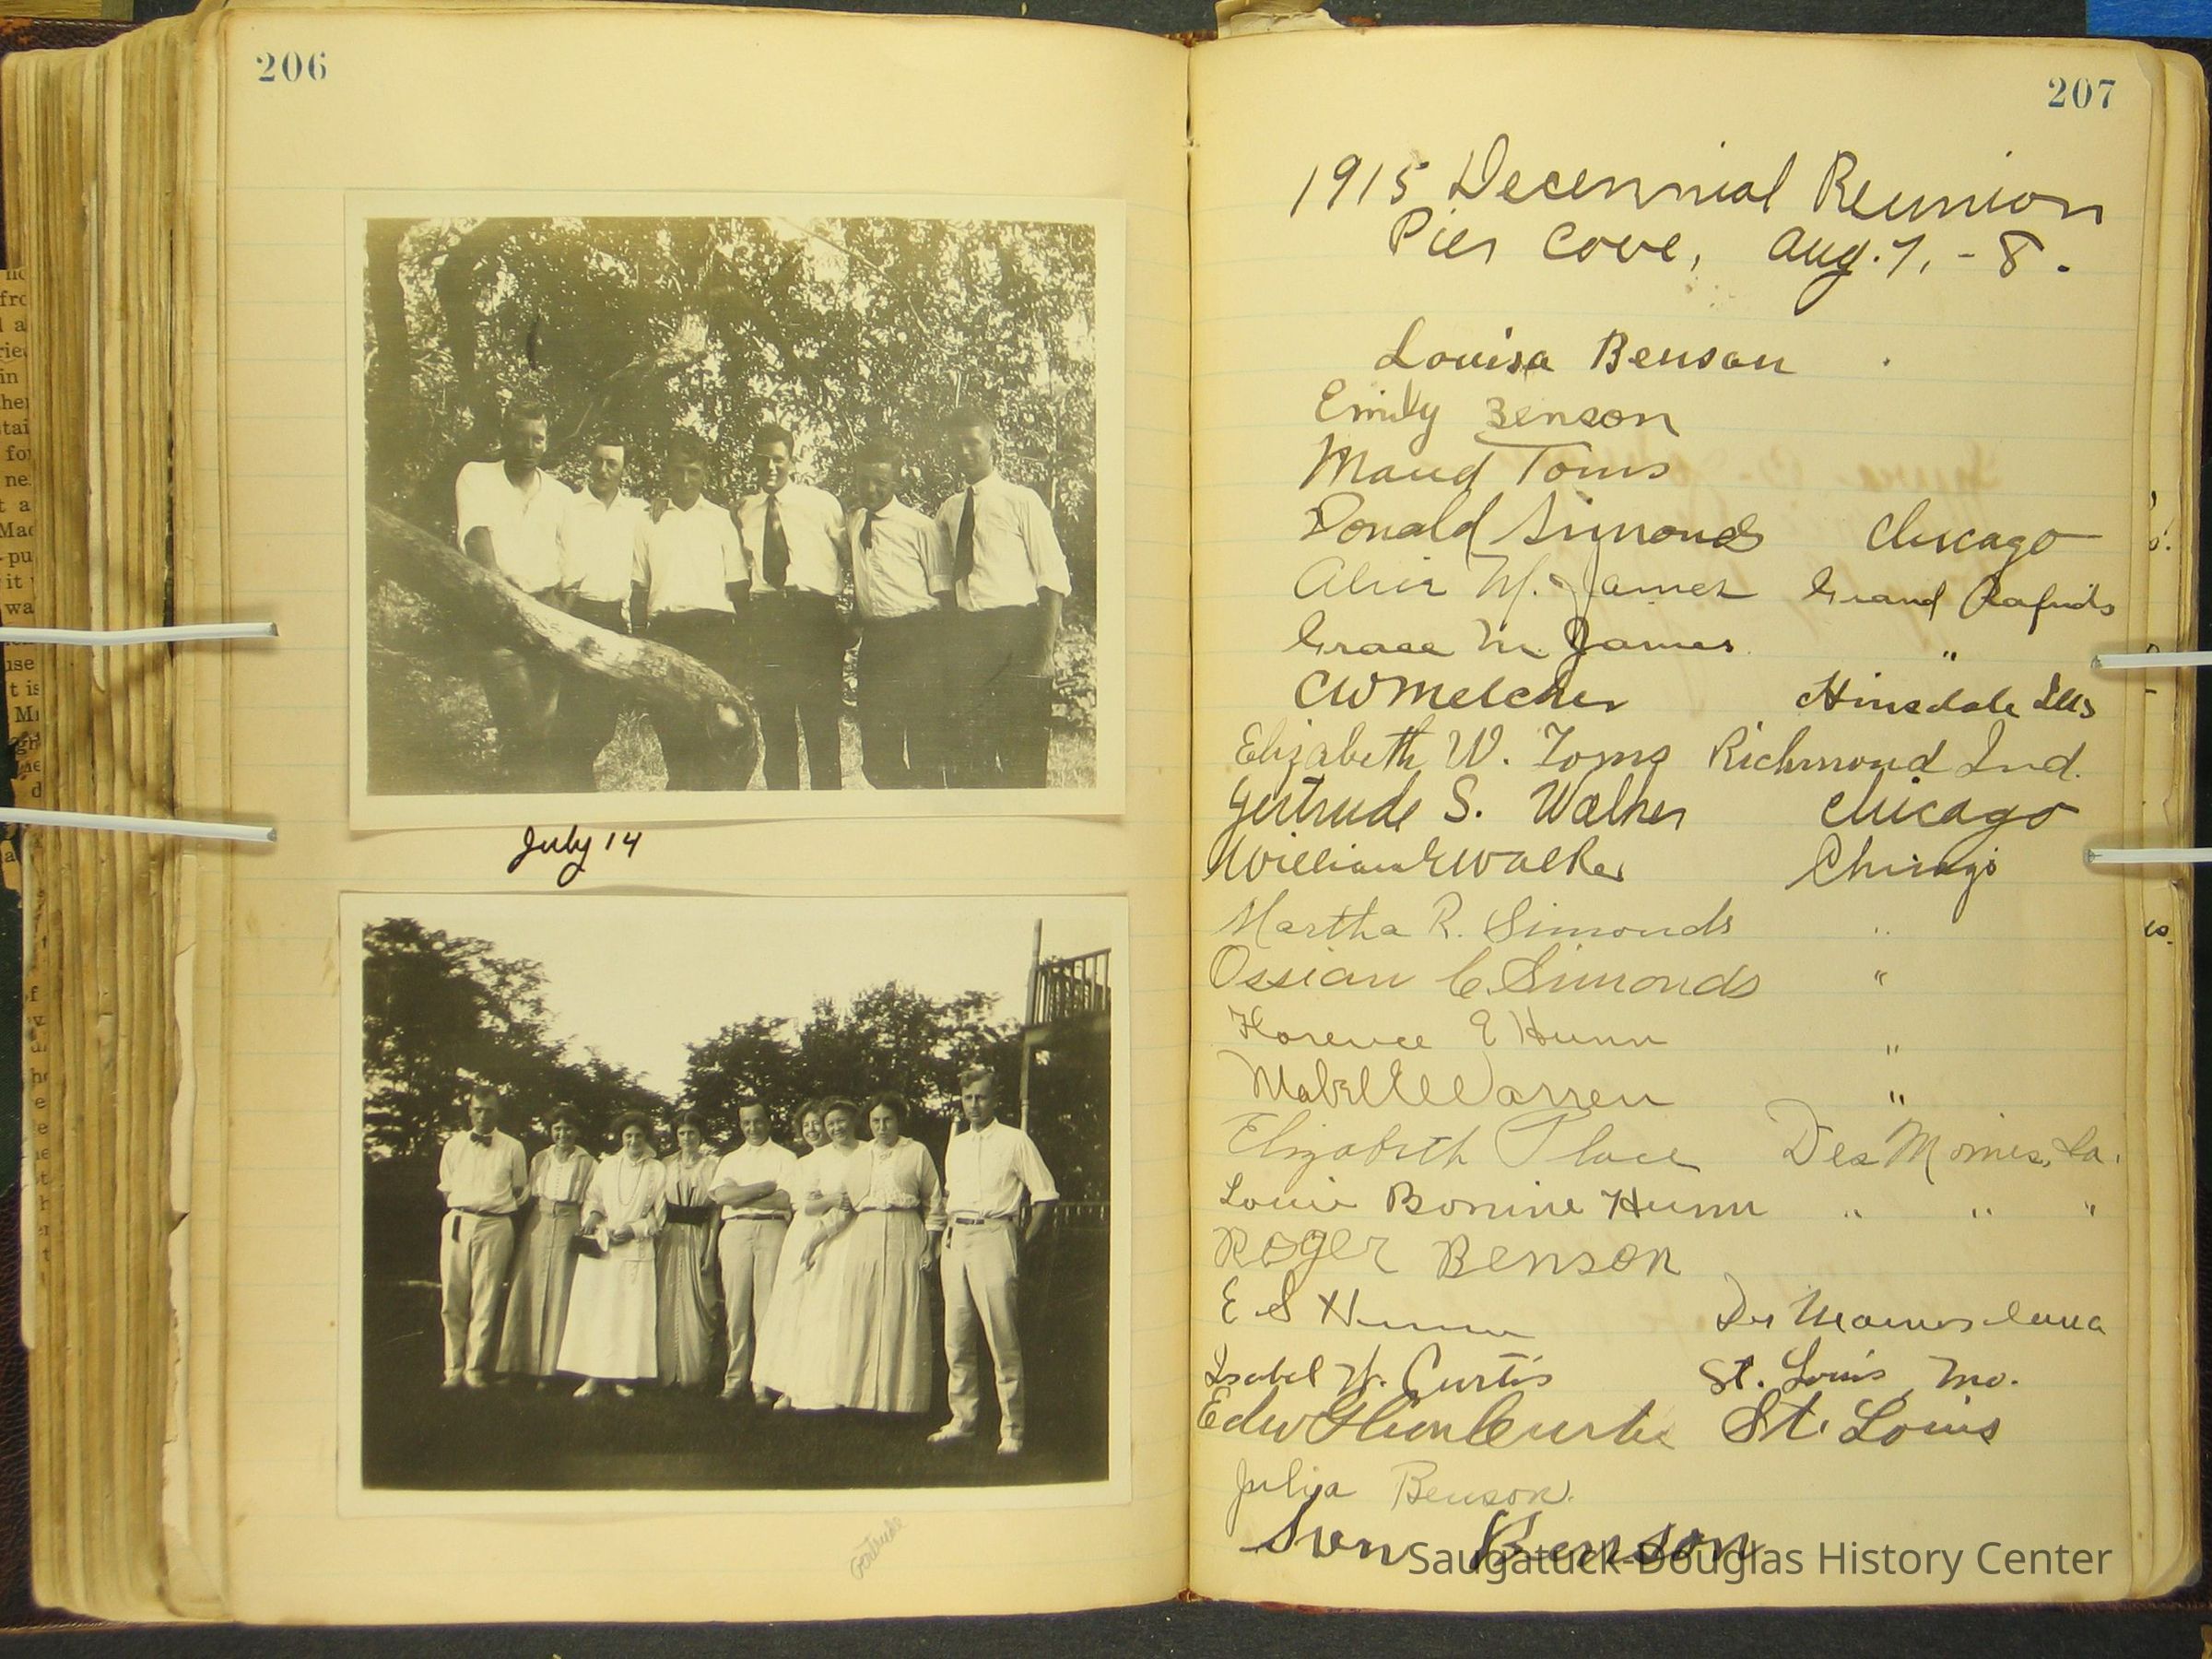 206
July 14
Gertrude
207
1915 Decennial Reunion
Pier Cove, Aug. 7, - 8.
Louisa Benson
Emily Benson
Maud Toms
Donald Simonds Chicago
Alice M. James Grand Rapids
Grace M. James "
CW Melcher Hinsdale Ills
Elizabeth W. Toms Richmond Ind.
Gertrude S. Walker Chicago
William E Walker Chicago
Martha R. Simonds "
Ossian C. Simonds "
Florence E Hunn "
Mabel Warren "
Elizabeth Place Des Moines, Ia.
Louie Bonine Hunn " " "
Roger Benson
E S Hunn Des Moines Iowa
Isabel W. Curtis St. Louis, Mo.
Edw Curtis St. Louis
Julia Benson.
Sven Benson
Saugatuck-Douglas History Center